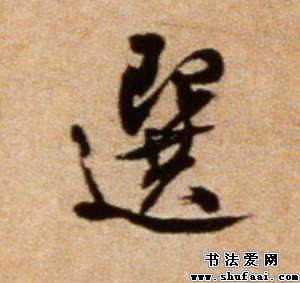 選
书法爱网
www.shufaai.com